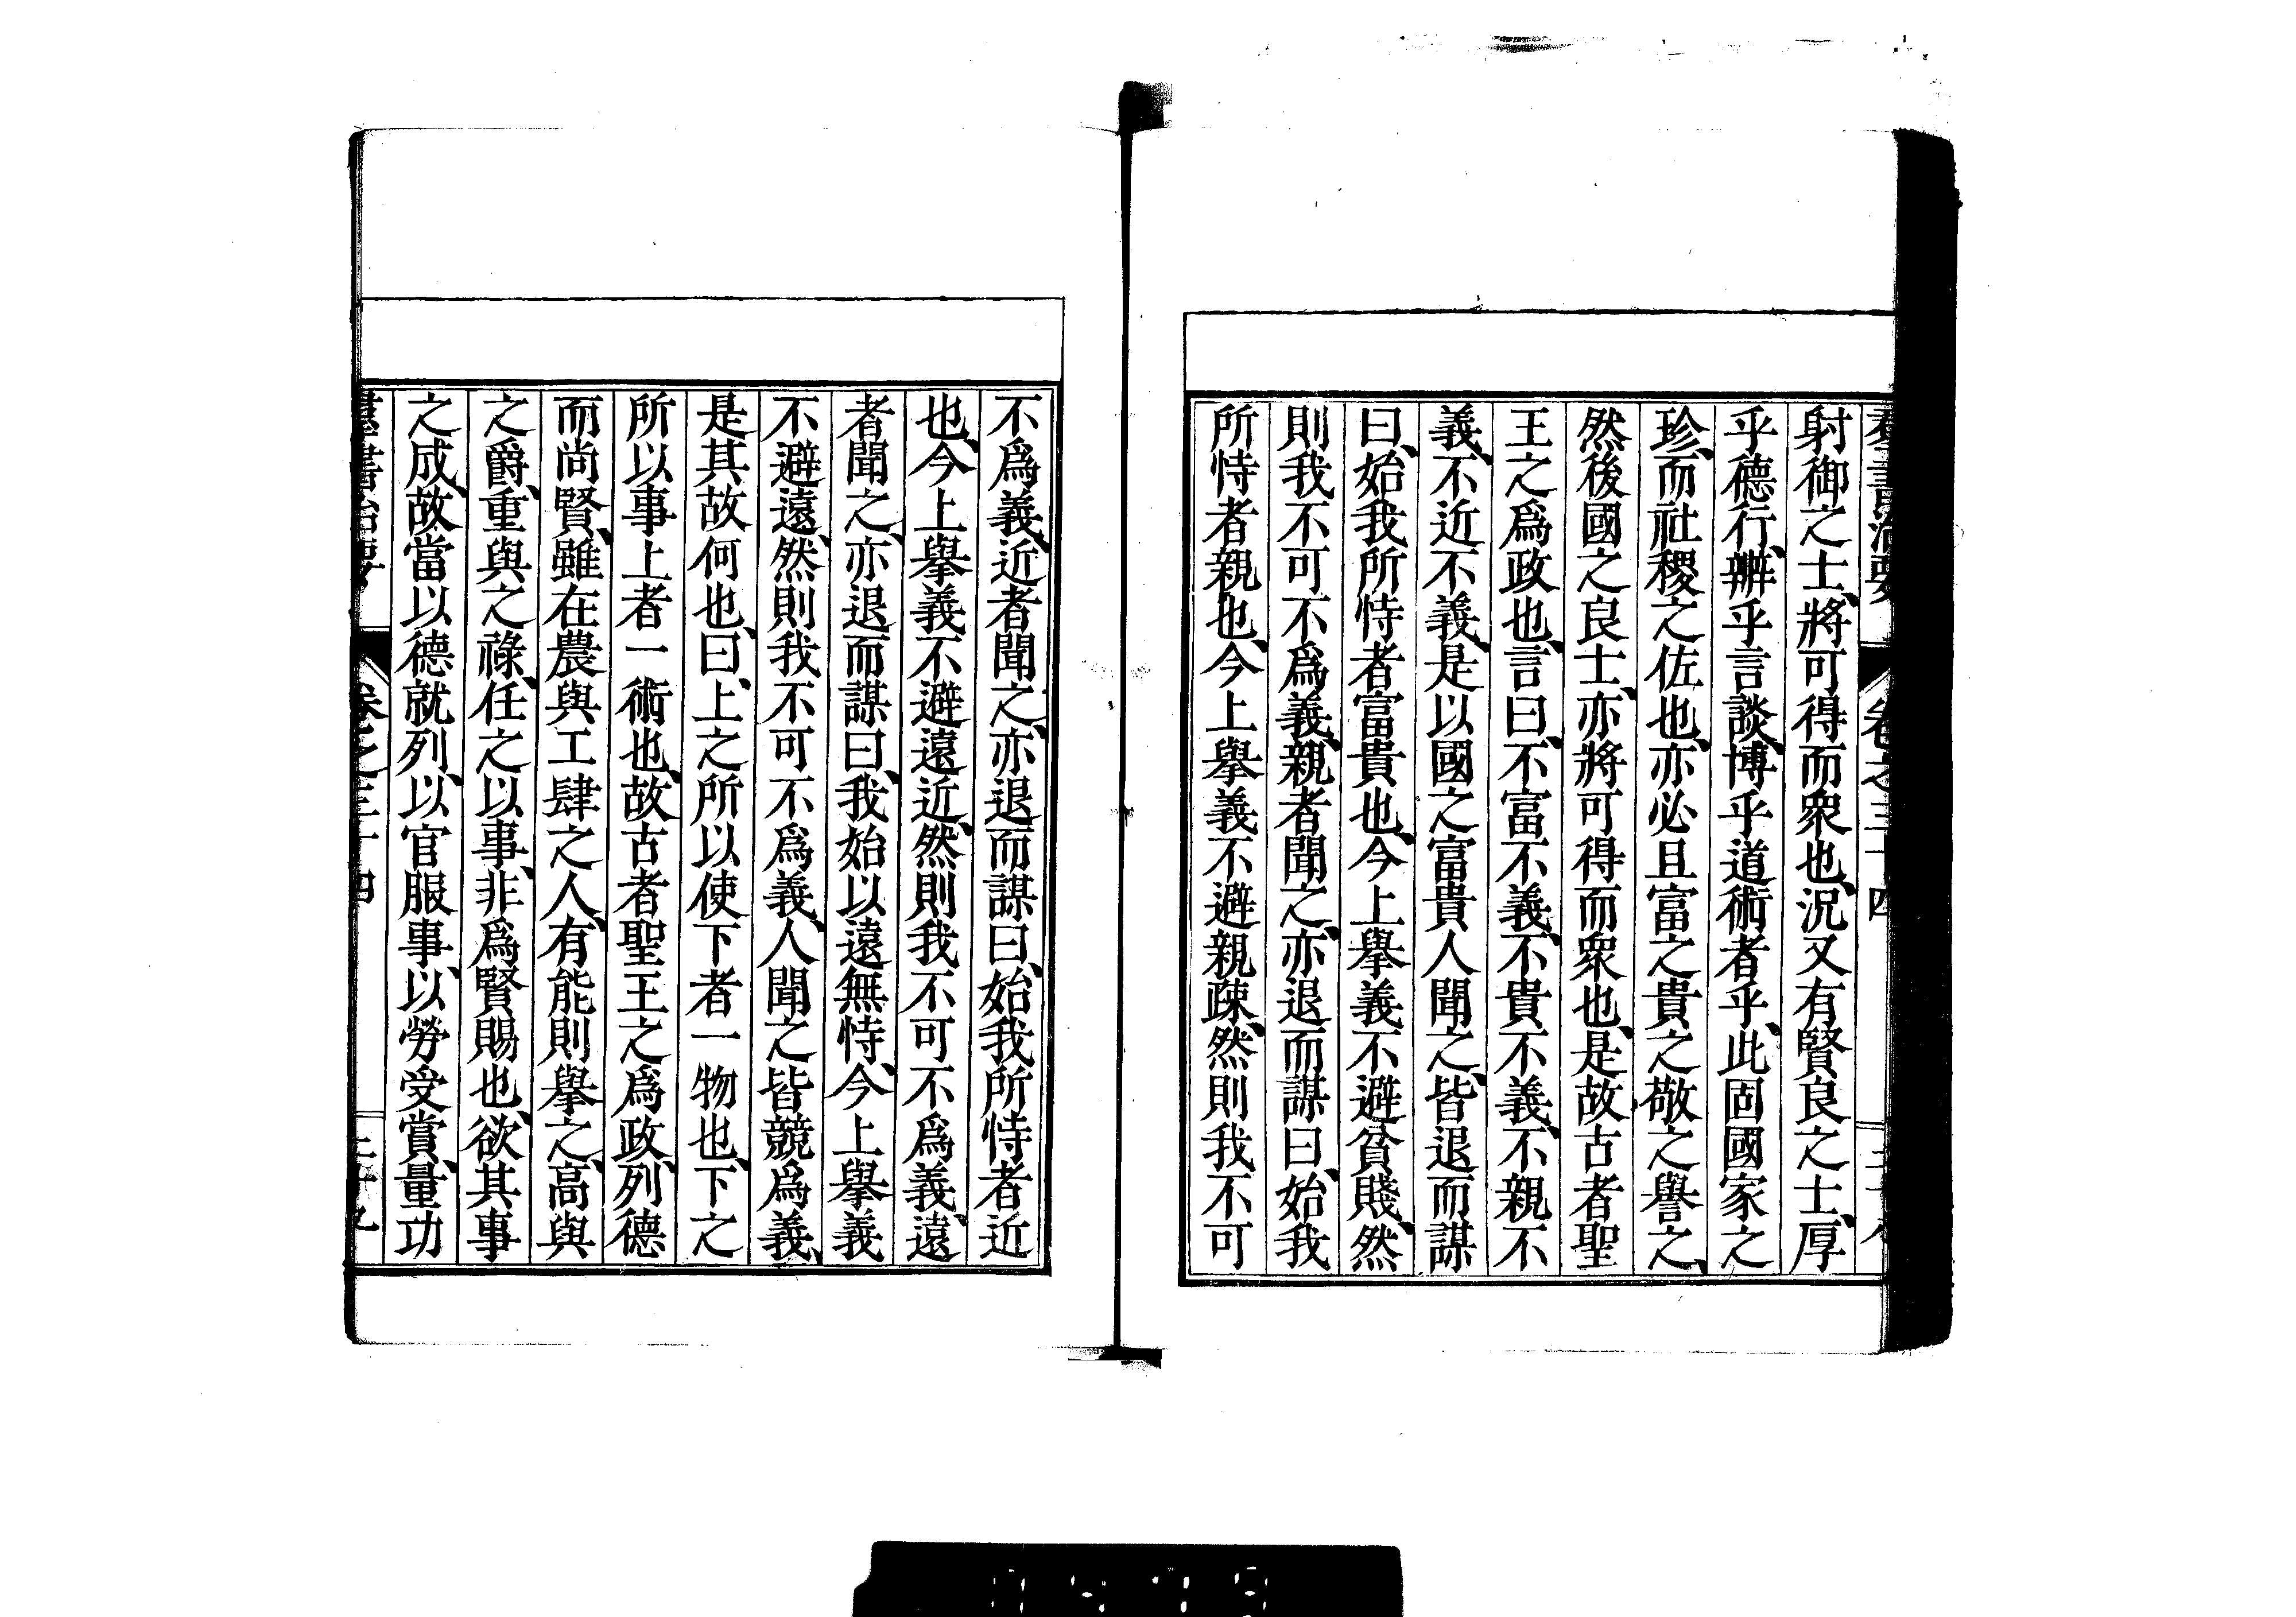 羣書治要 卷之三十四
射御之士、將可得而衆也、況又有賢良之士、厚
乎德行、辯乎言談、博乎道術者乎、此固國家之
珍、而社稷之佐也、亦必且富之貴之敬之譽之、
然後國之良士、亦將可得而衆也、是故古者聖
王之爲政也、言曰、不富不義、不貴不義、不親不
義、不近不義、是以國之富貴人聞之、皆退而謀
曰、始我所恃者富貴也、今上擧義不避貧賤、然
則我不可不爲義、親者聞之、亦退而謀曰、始我
所恃者親也、今上擧義不避親疎、然則我不可
不爲義、近者聞之、亦退而謀曰、始我所恃者近
也、今上擧義不避遠近、然則我不可不爲義、遠
者聞之、亦退而謀曰、我始以遠無恃、今上擧義
不避遠、然則我不可不爲義、人聞之皆競爲義、
是其故何也、曰、上之所以使下者一物也、下之
所以事上者一術也、故古者聖王之爲政、列德
而尚賢、雖在農與工肆之人、有能則擧之、高與
之爵、重與之祿、任之以事、非爲賢賜也、欲其事
之成、故當以德就列、以官服事、以勞受賞、量功
羣書治要 卷之三十四